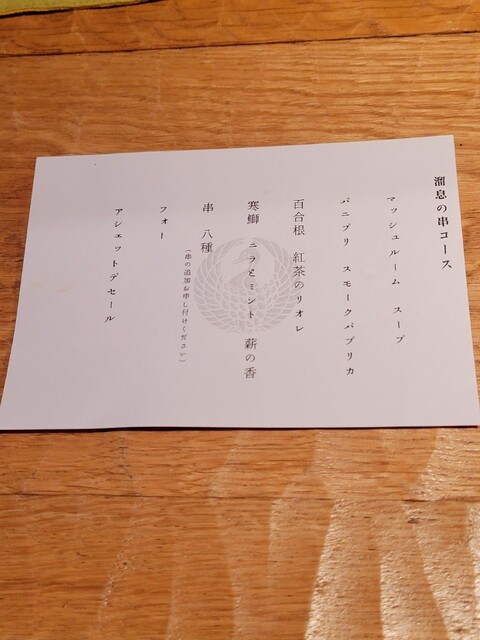 溜息の串コース
マッシュルーム スープ
パニプリ スモークパプリカ
百合根 紅茶のリオレ
寒鰤 ニラとミント 薪の香
串 八種
(串の追加お申し付けください)
フォー
アシェットデセール